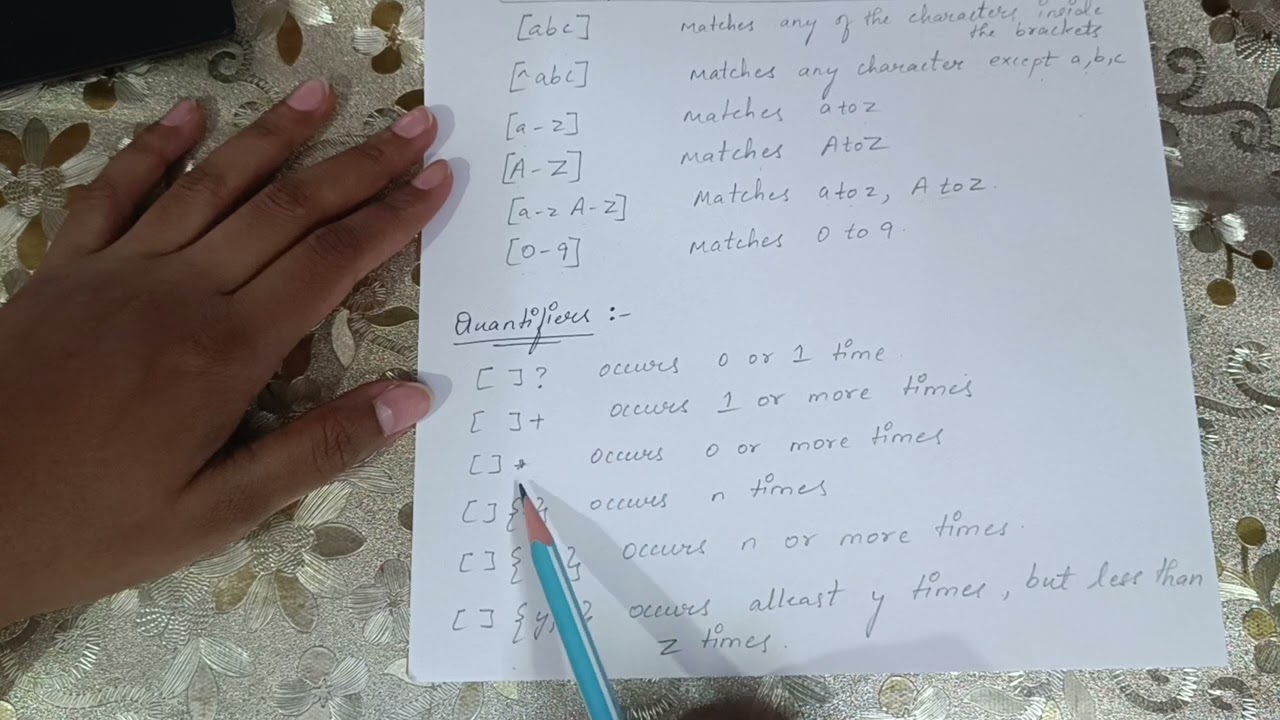 [abc] matches any of the characters inside
the brackets
[^abc] matches any character except a,b,c
[a-z] matches a to z
[A-Z] matches A to Z
[a-z A-Z] Matches a to z, A to Z.
[0-9] Matches 0 to 9.
Quantifiers :-
[ ]? occurs 0 or 1 time.
[ ]+ occurs 1 or more times
[ ]* occurs 0 or more times
[ ] occurs n times
[ ] occurs n or more times.
[ ] {y, } occurs atleast y times, but less than
z times.